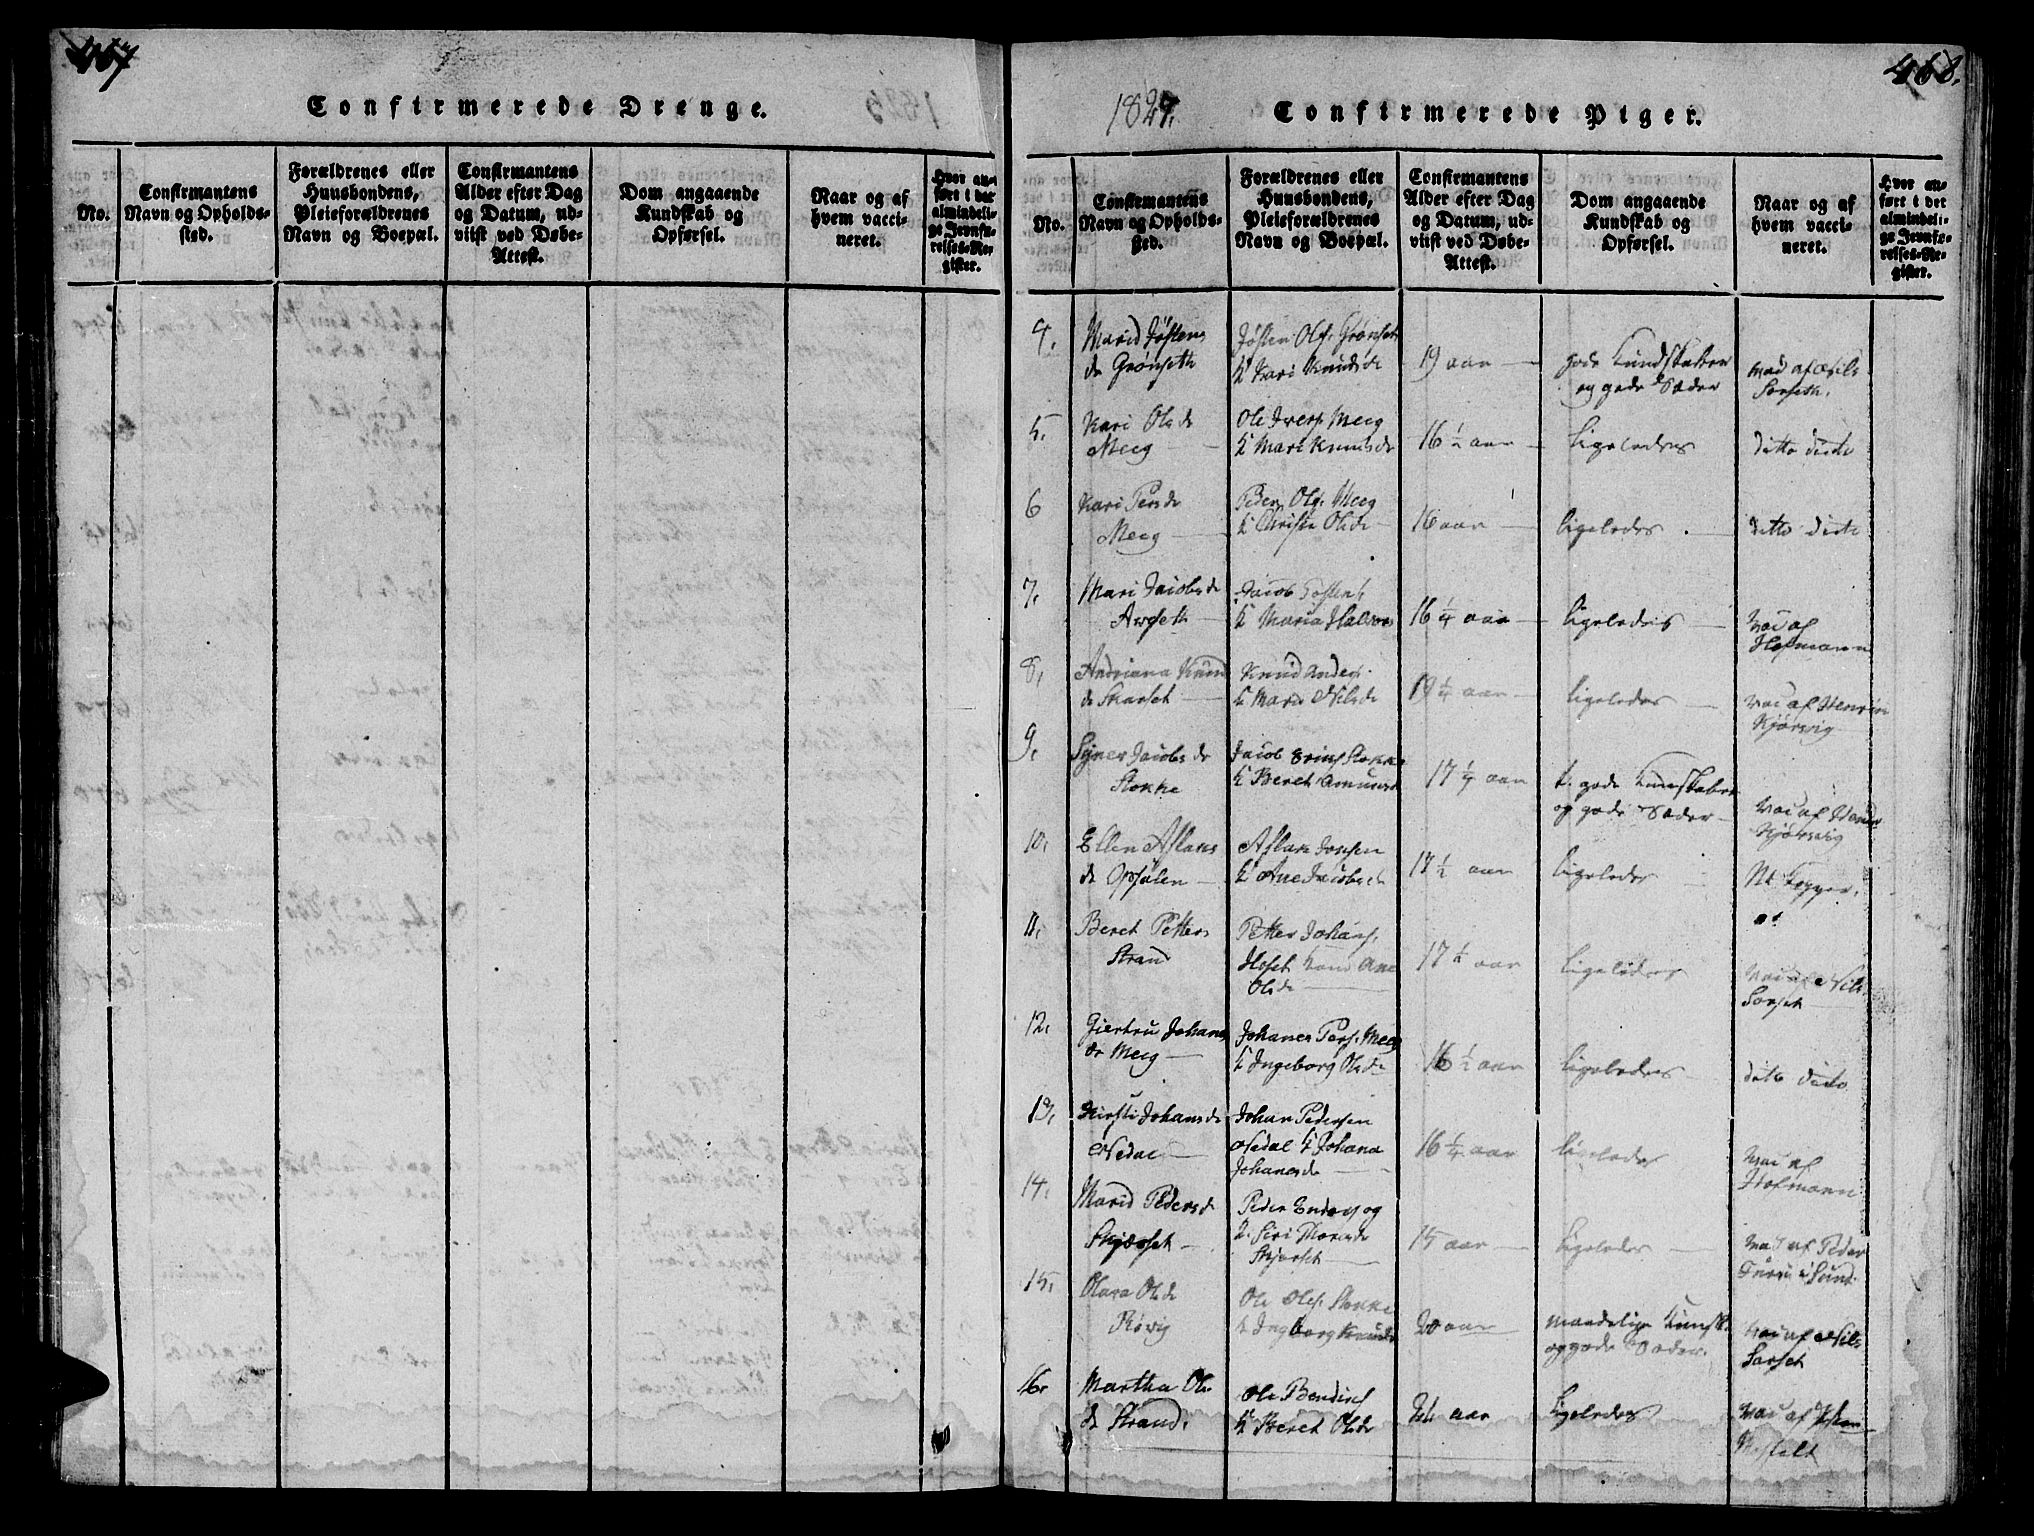 467
Confirmerede Drenge.
No.
Confirmantens
Navn og Opholds-
sted.
Forældrenes eller
Huusbondens,
Pleieforældrenes
Navn og Boepæl.
Confirmantens
Alder efter Dag
og Datum, ud-
viist ved Døbe-
Attest.
Dom angaaende
Kundskab og
Opførsel.
Naar og af
hvem vacci-
neret.
Hvor an-
ført i det
almindeli-
ge Jevnfø-
relses-Re-
gister.
468.
1827.
Confirmerede Piger.
No.
Confirmantens
Navn og Opholds-
sted.
Forældrenes eller
Huusbondens,
Pleieforældrenes
Navn og Boepæl.
Confirmantens
Alder efter Dag
og Datum, ud-
viist ved Døbe-
Attest.
Dom angaaende
Kundskab og
Opførsel.
Naar og af
hvem vacci-
neret.
Hvor an-
ført i det
almindeli-
ge Jevnfø-
relses-Re-
gister.
4.
Marid Jøstens
dr Grønseth
Jøsten Ols. Grønset
K Kari Knudsdr
19 aar
gode Kundskaber
og gode Sæder
vac af Nils
Sorseth.
5.
Kari Olsdr
Meeg
Ole Ivers. Meeg
K Mari Knudsdr
16 ½ aar
ligeledes
ditto ditto
6
Kari Persdr
Meeg
Peder Ols. Meeg
K Christi Olsdr
16 aar
ligeledes
ditto ditto
7.
Mari Jacobsdr
Jacob Jostens.
K Maria Halvors
16 ¼ aar
ligeledes
vac af
Hofmann
8.
Andriana Knud
dr Skarset
Knud Anders.
K Marit Nilsdr
19 ¼ aar
ligeledes
vac af Henrik
Kjørsvig
9.
Jacobsdr
Stokke
Jacob Stokke
K Beret
17 ¼ aar
t. gode Kundskaber
og gode Sæder
vac af
Kjørsvig
10.
Ellen Aslaks
dr Opsalen
Aslak
K Ane Jacobsdr
17 ½ aar
ligeledes
11.
Beret Petters
Strand
Petter Johans.
Kone Ane
Olsdr
17 ¼ aar
ligeledes
vac af Nils
Sorset
12.
Giertru Johans
dr Meeg
Johanes Pers. Meeg
K Ingeborg Olsdr
16 ½ aar
ligeledes
ditto ditto
13.
Kirsti Johansdr
Nedal
Johan Pedersen
Nedal K Johana
Johanesdr
16 ¼ aar
ligeledes
vac af
Hofmann
14.
Marid Pedersdr
Peder og
K. Siri
15 aar
ligeledes
vac af Peder
15.
Olava Olsdr
Røvig
Ole Ols. Stokke
K Ingborg Knudsdr
20 aar
maadelige Kundsk.
og gode Sæder.
vac af Nils
Sorset
16.
Martha Ols
dr Strand.
Ole Bendixs
K Beret Olsdr
ligeledes
vac af